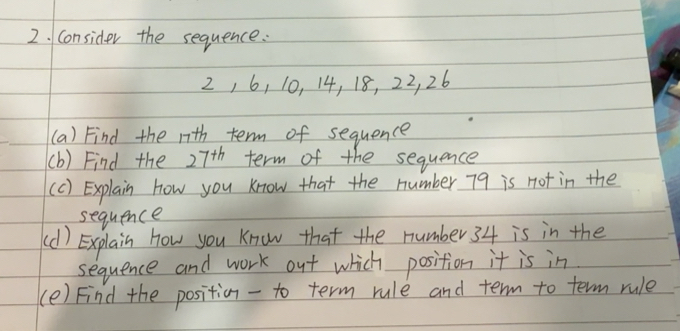 2. Consider the sequence:
2, 6, 10, 14, 18, 22, 26
(a) Find the nth term of sequence
(b) Find the 27th term of the sequence
(c) Explain how you know that the number 79 is not in the
sequence
(d) Explain how you know that the number 34 is in the
sequence and work out which position it is in
(e) Find the position - to term rule and term to term rule